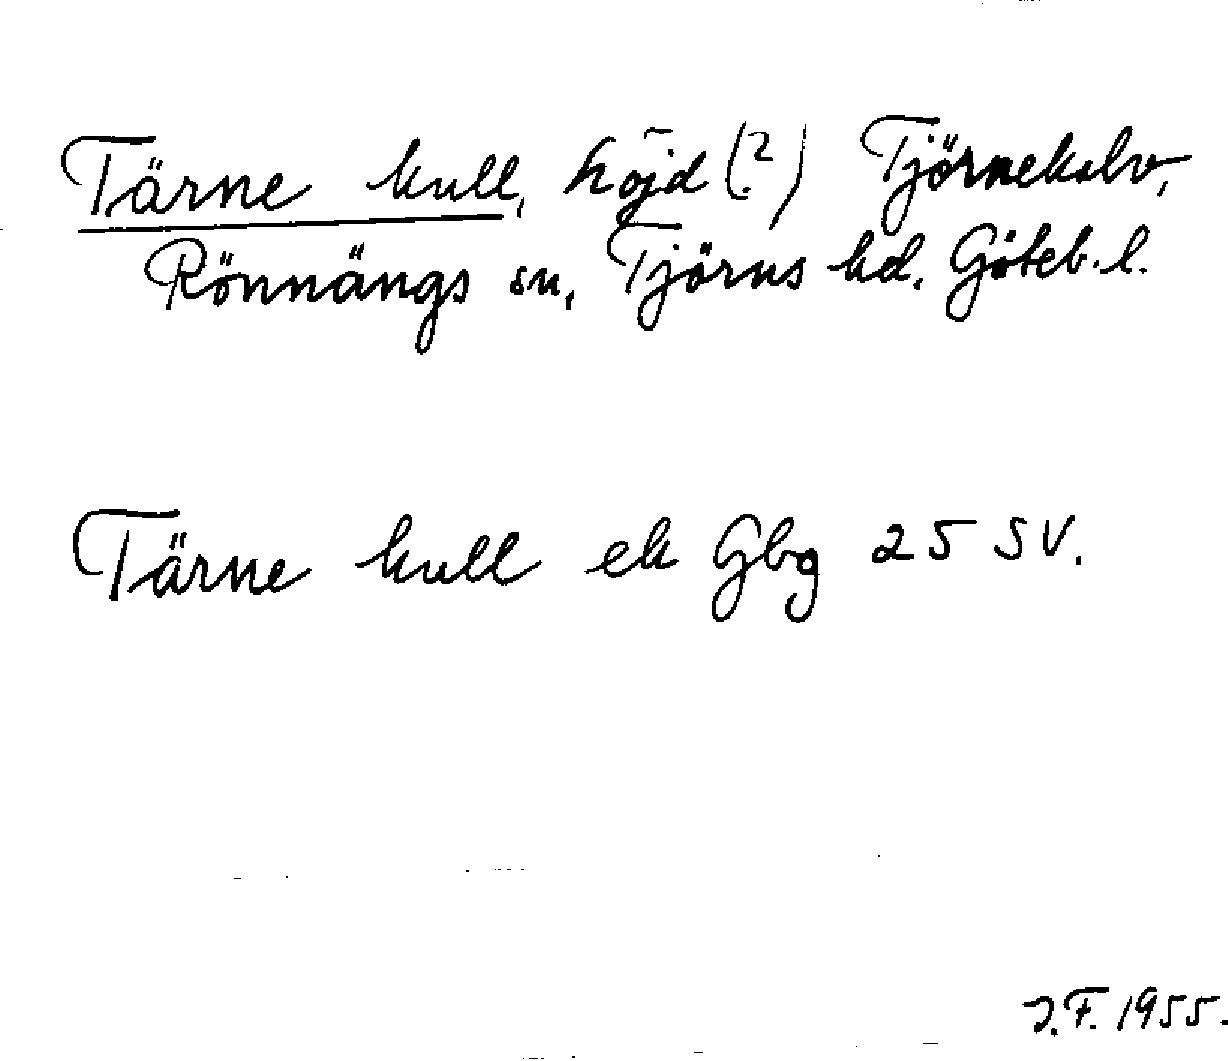 Tärne kull, höjd (?) Tjörnekalv,
Rönnängs sn, Tjörns hd. Göteb. l.
Tärne kull ek Gbg 25 SV.
J.F. 1955.